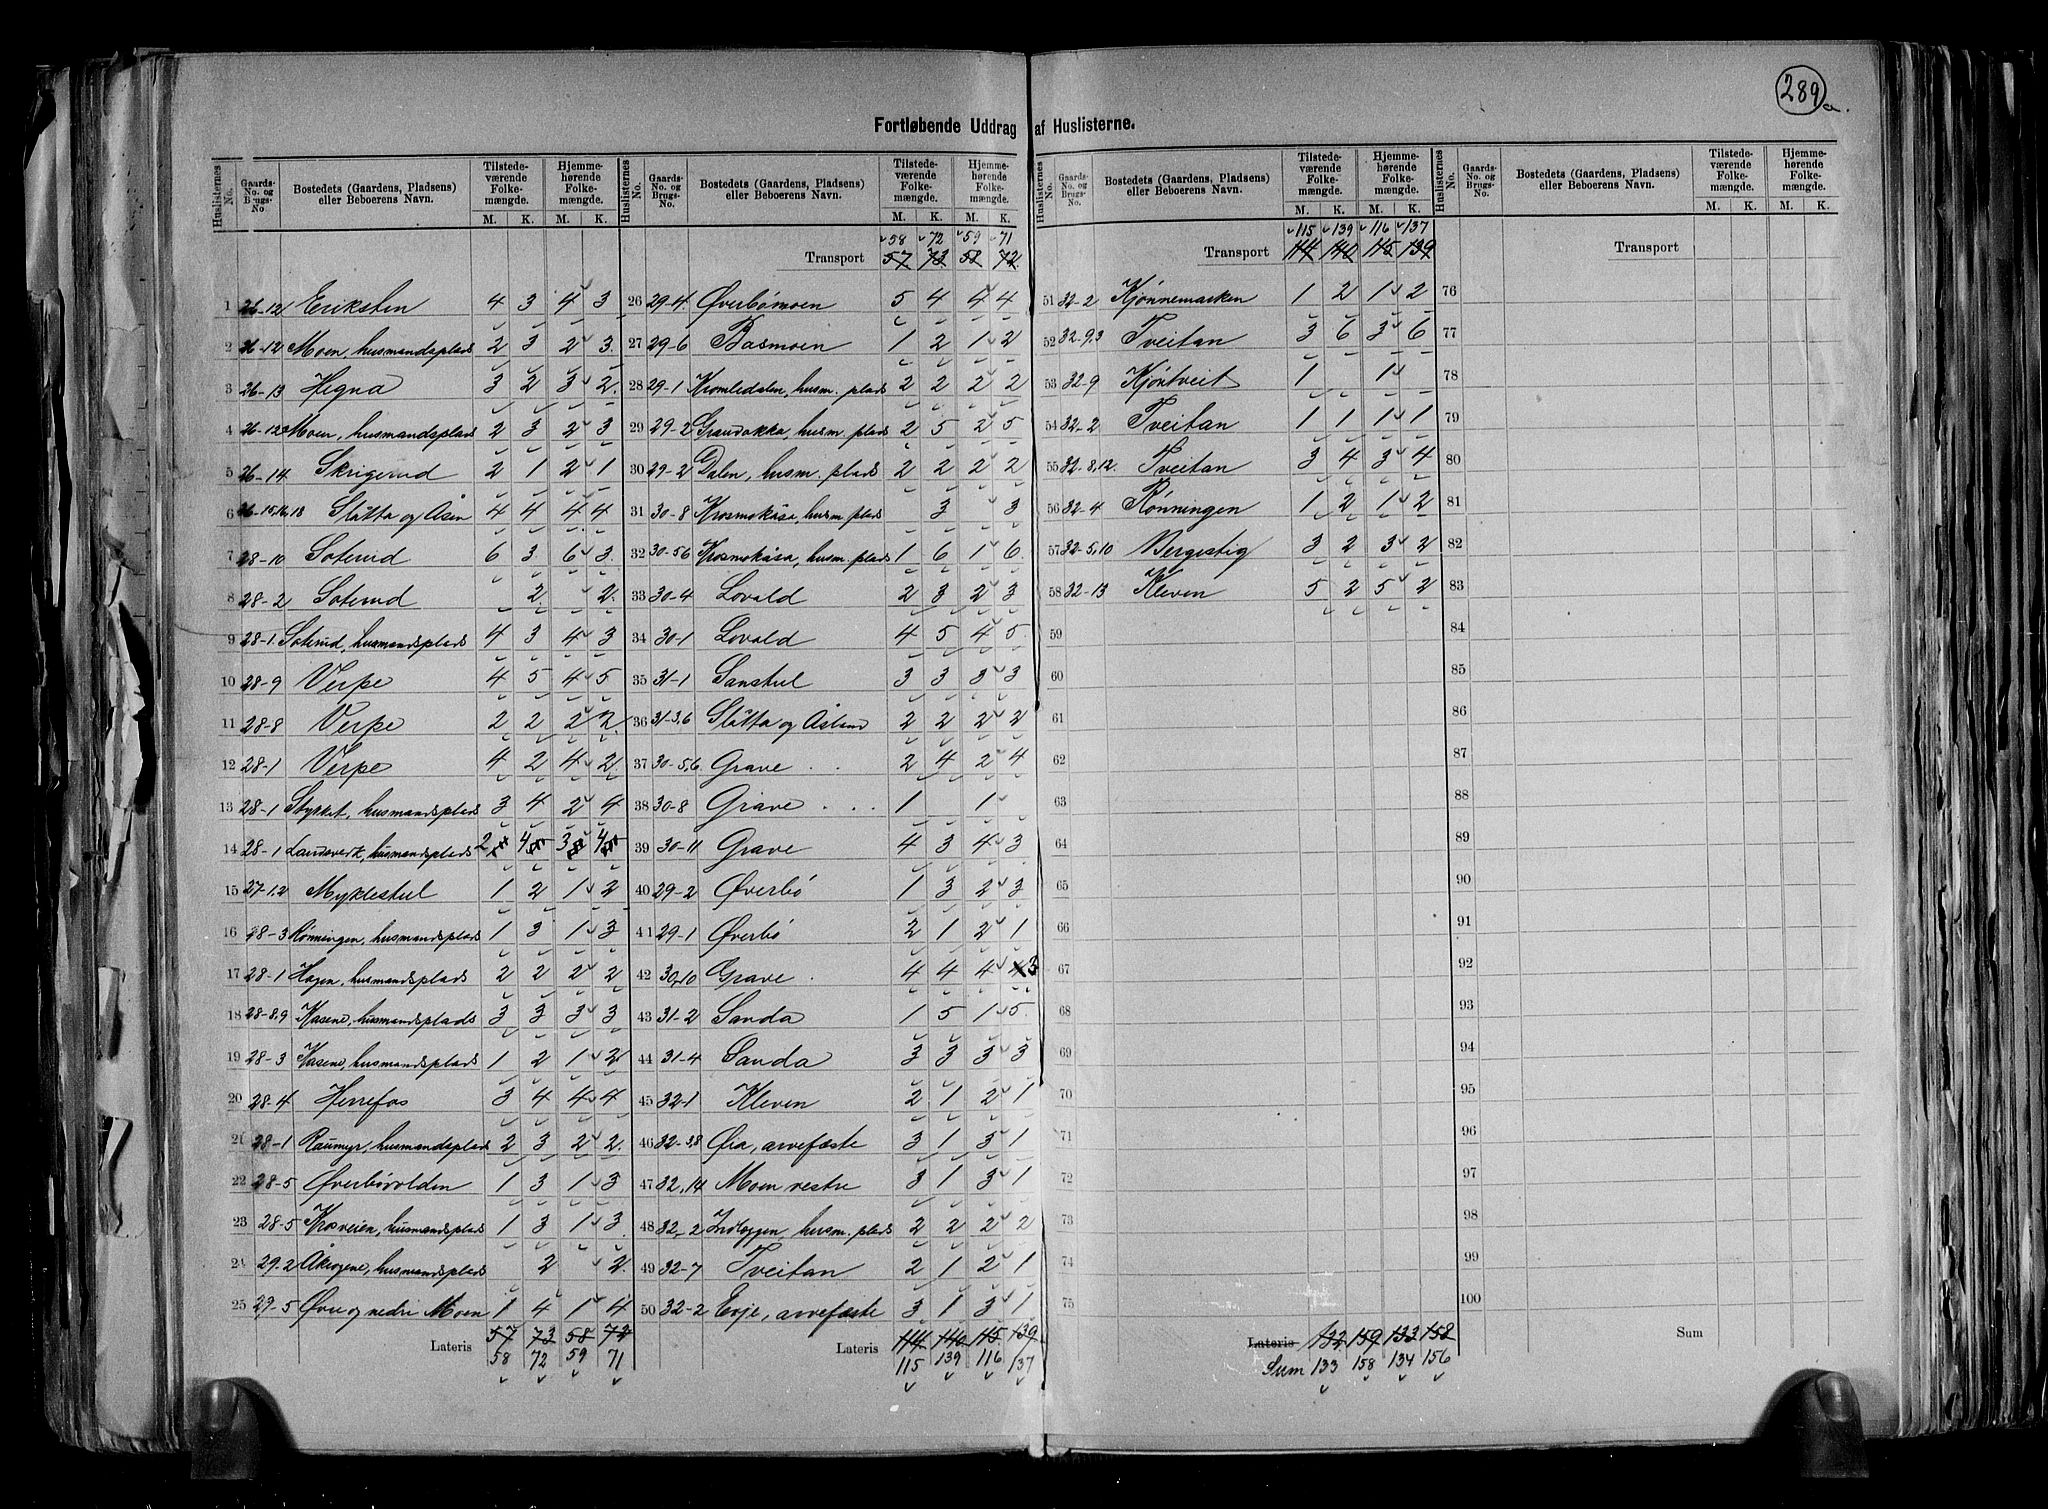 289 a.
Fortløbende Uddrag af Huslisterne.
Huslisternes No. Gaards-No. og Brugs-No. Bostedets (Gaardens, Pladsens) eller Beboerens Navn. Tilstedeværende Folkemængde. M. K. Hjemmehørende Folkemængde. M. K.
1 26-12 Eriksten 4 3 4 3
2 26-12 Moen, husmandsplads 2 3 2 3.
3 26-13 Hegna 3 2 3 2.
4 26-12 Moen, husmandsplads 2 3 2 3
5 26-14 Skrigerud 2 1 2 1
6 26-15,16,18 Slåtta og Åsen 4 4 4 4
7 28-10 Soterud 6 3 6 3.
8 28-2 Soterud 2 2.
9 28-1 Soterud, husmandsplads 4 3 4 3
10 28-9 Verpe 4 5 4 5
11 28-8 Verpe 2 2 2 2.
12 28-1 Verpe 4 2 4 2
13 28-1 Stykket, husmandsplads 3 4 2 4
14 28-1 Landsverk, husmandsplads 2 4 3 4
15 27-1,2 Myklestul 1 2 1 2
16 28-3 Rønningen, husmandsplads 1 3 1 3
17 28-1 Hagen, husmandsplads 2 2 2 2
18 28-8,9 Kasene, husmandsplads 3 3 3 3
19 28-3 Kasene, husmandsplads 1 2 1 2
20 28-4 Herrefos 3 4 4 4
21 28-1 Raumyr, husmandsplads 2 3 2 2.
22 28-5 Øverbøvolden 1 3 1 3
23 28-5 Krosveien, husmandsplads 1 3 1 3
24 29-2 husmandsplads 2 2.
25 29-5 Øvre og nedre Moen 1 4 1 4
Lateris 57 73 58 72
58 72 59 71
58 72 59 71
Transport 57 73 58 72
26 29-4. Øverbømoen 5 4 4 4
27 29-6 Basmoen 1 2 1 2
28 29-1 Kromledalen, husm. plads 2 2 2 2
29 29-2 husm. plads 2 5 2 5
30 29-2 Dalen, husm. plads 2 2 2 2
31 30-8 Krosmokåsa, husm. plads 3 3
32 30-5,6 Krosmokåsa, husm. plads 1 6 1 6.
33 30-4 Lovald 2 3 2 3
34 30-1 Lovald 4 5 4 5.
35 31-1 Sanstul 3 3 3 3
36 31-3,6 Slåtta og Åsland 2 2 2 2
37 30-5,6 Grave 2 4 2 4
38 30-8 Grave 1 1
39 30-11 Grave 4 3 4 3
40 29-2 Øverbø 1 3 2 3
41 29-1 Øverbø 2 1 2 1
42 30,10 Grave 4 4 4 4 3
43 31-2 Sanda 1 5 1 5.
44 31-4 Sanda 3 3 3 3
45 32-1 Kleven 2 1 2 1
46 32-3,8 Øia, arvefæste 3 1 3 1
47 32,14 Moen vestre 3 1 3 1
48 32,2 Indlæggen, husm. plads 2 2 2 2
49 32-7 Tveitan 2 1 2 1
50 32-2 Evje, arvefæste 3 1 3 1
Lateris 114 140 115 139
115 139 116 137
115 139 116 137
Transport 114 140 115 139
51 32-2 Kjønnemarken 1 2 1 2
52 32-9,3 Tveitan 3 6 3 6
53 32-9 Kjöntveit 1 1
54 32-2 Tveitan 1 1 1 1
55 32-8,12. Tveitan 3 4 3 4
56 32-4 Rønningen 1 2 1 2
57 32-5,10 Bergestig 3 2 3 2
58 32-13 Kleven 5 2 5 2
59
60
61
62
63
64
65
66
67
68
69
70
71
72
73
74
75
Lateris 132 159 133 158
Sum 133 158 134 156
Transport
76
77
78
79
80
81
82
83
84
85
86
87
88
89
90
91
92
93
94
95
96
97
98
99
100
Sum